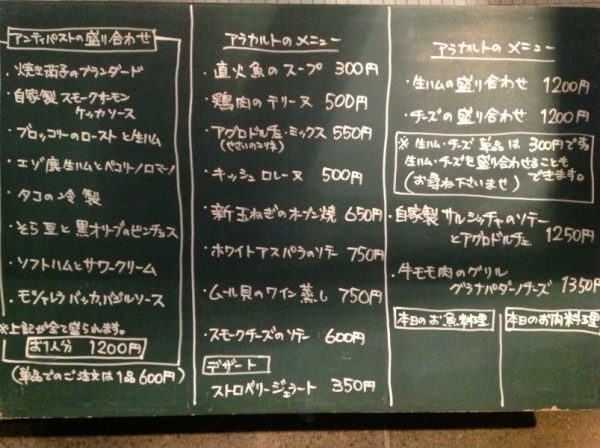 アンティパストの盛り合わせ
・焼き茄子のブランダード
・自家製スモークサーモン
ケッカソース
・ブロッコリーのローストと生ハム
・エゾ鹿生ハムとペコリーノロマーノ
・タコの冷製
・そら豆と黒オリーブのピンチョス
・ソフトハムとサワークリーム
・モッツァレラバッカ、バジルソース
※上記が全て盛られます。
お1人分 1200円
(単品でのご注文は1品600円)
アラカルトのメニュー
・直火魚のスープ 300円
・鶏肉のテリーヌ 500円
・アグロドルチェ・ミックス 550円
(やさいのマリネ)
・キッシュロレーヌ 500円
・新玉ねぎのオーブン焼 650円
・ホワイトアスパラのソテー 750円
・ムール貝のワイン蒸し 750円
・スモークチーズのソテー 600円
デザート
ストロベリージェラート 350円
アラカルトのメニュー
・生ハムの盛り合わせ 1200円
・チーズの盛り合わせ 1200円
※生ハム・チーズ単品は300円です。
生ハム・チーズを盛り合わせることも
できます。
(お尋ね下さいませ)
・自家製サルシッチャのソテー
とアグロドルチェ 1250円
・牛モモ肉のグリル
グラナパダーノチーズ 1350円
本日のお魚料理
本日のお肉料理